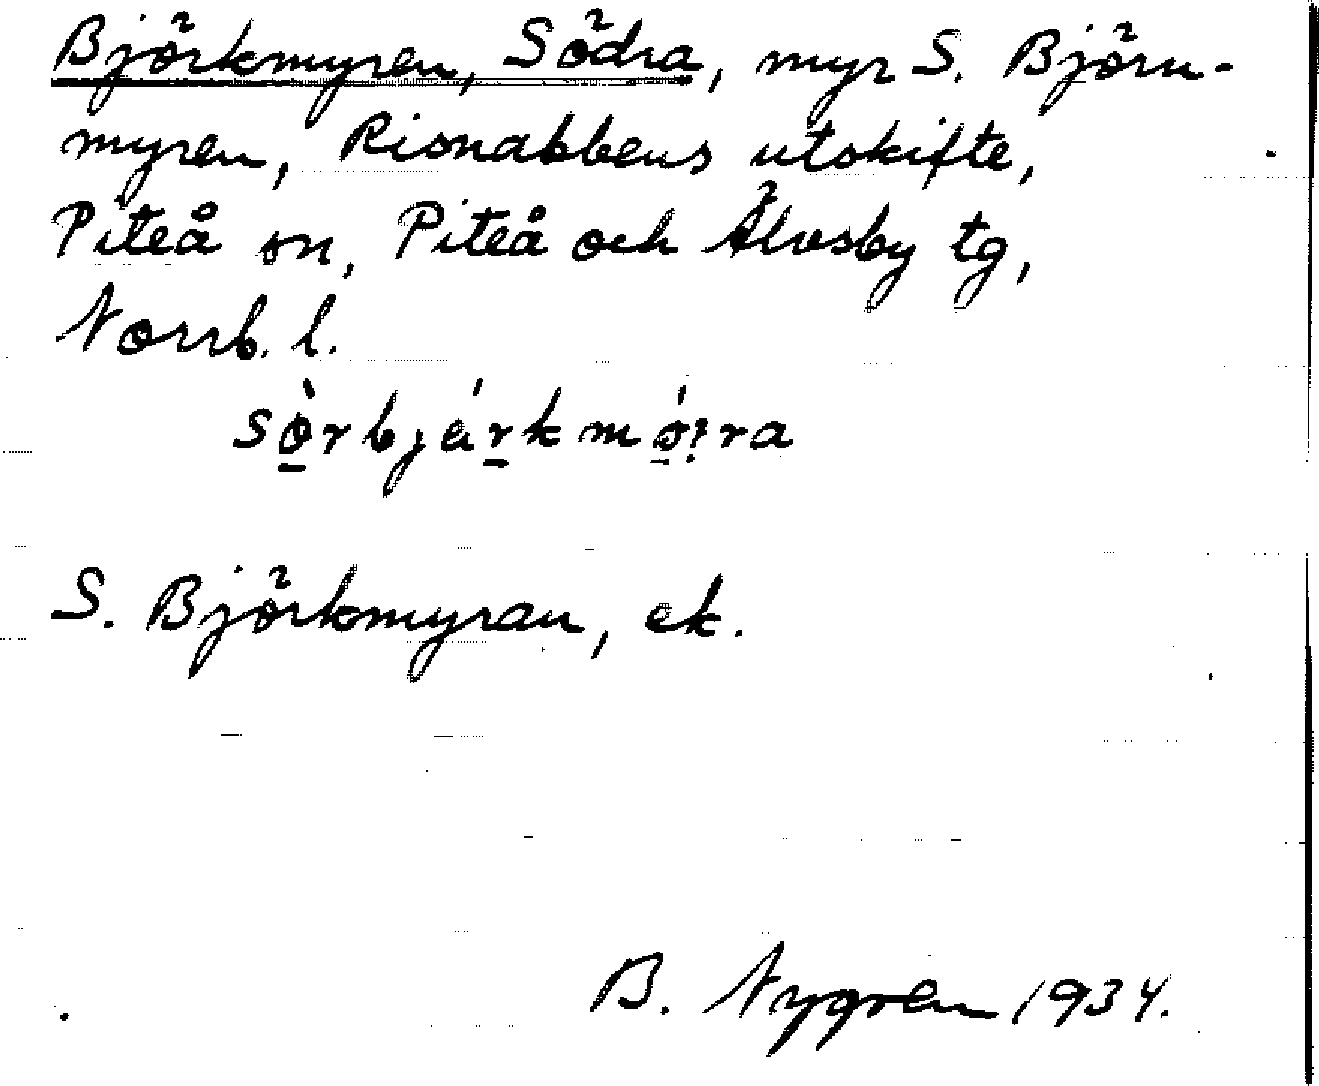 Björkmyren, Södra, myr S. Björn-
myren, Risnabbens utskifte,
Piteå sn, Piteå och Älvsby tg,
Norrb. l.
S. Björkmyran, ek.
B. Nygren 1934.